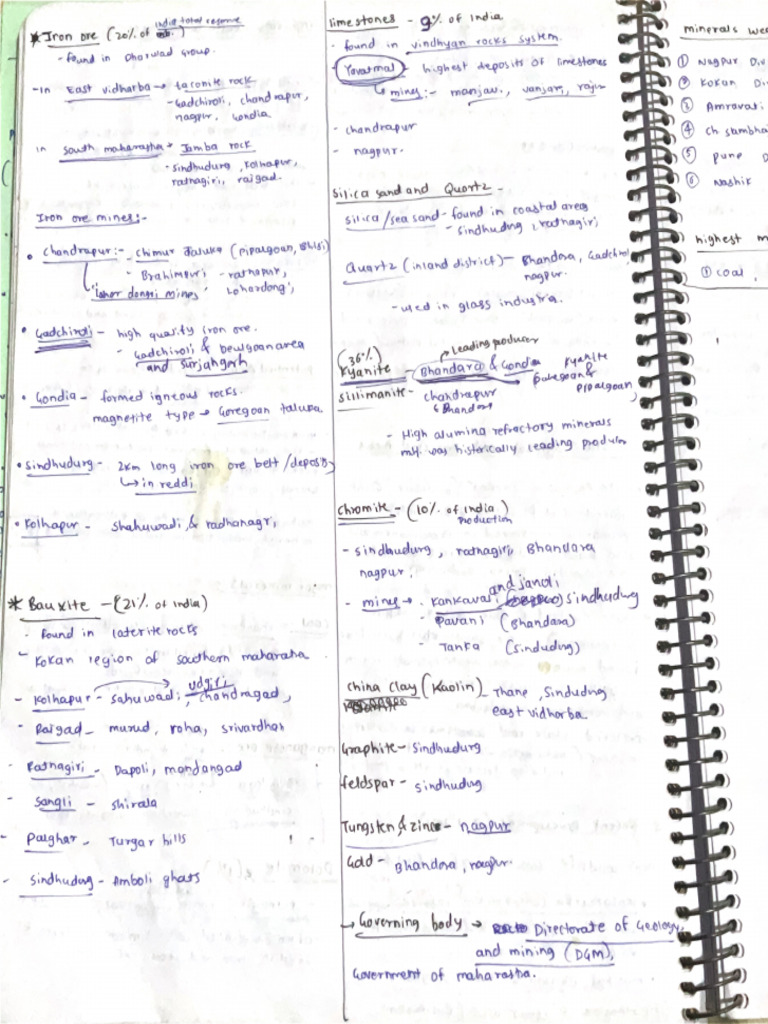 * Iron ore (20% of India total reserve
- found in Dharwad Group.
- In East vidharba → taconite rock
- Gadchiroli, chandrapur,
nagpur, Gondia
in South maharastra → Jamba rock
- sindhudurg, kolhapur,
ratnagiri, raigad.
Iron ore mines:-
• chandrapur:- - chimur Taluka (pipalgoan, Bhisi)
- Brahmpuri - ratnapur,
Lohar dongri mines Lohardongi,
• Gadchiroli - high quality iron ore.
- Gadchiroli & beulgoan area
and Surjahgarh
• Gondia - formed igneous rocks.
magnetite type → Goregoan taluka.
• Sindhudurg - 2km long iron ore belt / deposits
↳ in reddi
• Kolhapur - shahuwadi & radhanagri,
* Bauxite - (21% of India)
- found in laterite rocks
- Kokan region of southern maharasha
- Kolhapur - sahuwadi, udgiri, chandragad,
- Raigad - murud, roha, srivardhan
- Ratnagiri - Dapoli, mandangad
- Sangli - shirala
- Palghar - Turgar hills
- Sindhudug - Amboli ghats
limestones - 9% of India
- found in vindhyan rocks system.
- Yavatmal - highest deposits of limestones
↳ mines:- manjari, vanjari, rajur
- chandrapur
- nagpur.
Silica sand and Quartz -
silica/sea sand - found in coastal area
- sindhudug, ratnagiri,
Quartz (inland district) - Bhandara, Gadchirol
nagpur.
- used in glass industria.
→ Leading producer
(36%)
Kyanite - Bhandara & Gondia Kyanite
Pulegoan &
Pipalgoan
Sillimanite - chandrapur
& Bhandara
- High alumina refractory minerals
mH was historically leading produm
Chromite - (10% of India)
Production
- sindhudurg, ratnagiri, Bhandara
nagpur,
- mines → Kankavali and Janoli sindhudug
- Pavani (Bhandara)
- Tanka (Sindudug)
China Clay (Kaolin) - Thane, Sindudug
east vidhorba.
Graphite - Sindhudurg
feldspar - sindhudug
Tungsten & zinc - nagpur
Gold - Bhandara, nagpur.
→ Governing body → Directorate of Geology
and mining (DGM),
Government of maharastra.
minerals we
① Nagpur Div
② Kokan Di
③ Amravati
④ Ch sambha
⑤ Pune D
⑥ Nashik
highest m
① coal,